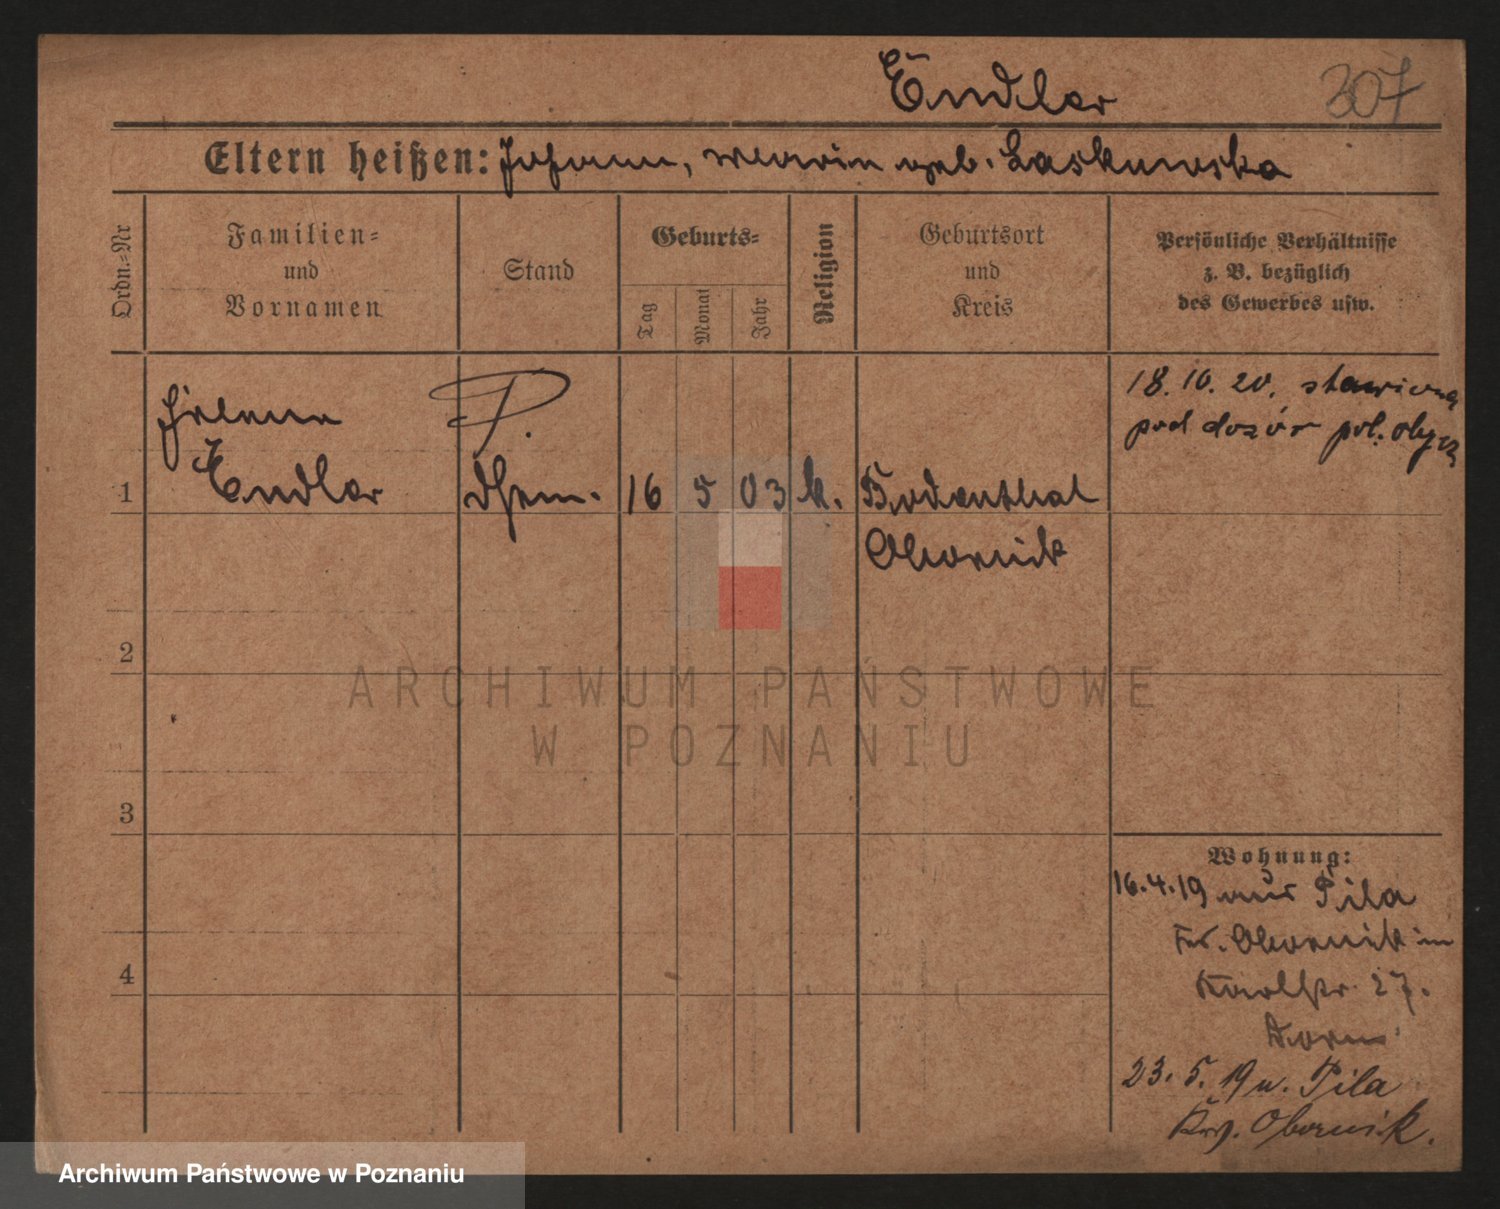 Endler 307
Eltern heißen: Johann, Maria geb. Laskowska
Ordn.-Nr
Familien-
und
Vornamen
Stand
Geburts-
Tag
Monat
Jahr
Religion
Geburtsort
und
Kreis
Persönliche Verhältnisse
z. B. bezüglich
des Gewerbes usw.
18. 10. 20. stawiona
pod dozór pol. obycz
Helena P.
1 Endler 16 5 03 k. Bodenthal
Obornik
2
3
4
Wohnung:
16.4.19 aus Pila
Kr. Obornik
27.
23. 5. 19 n. Pila
Obornik.
ARCHIWUM PAŃSTWOWE
W POZNANIU
Archiwum Państwowe w Poznaniu